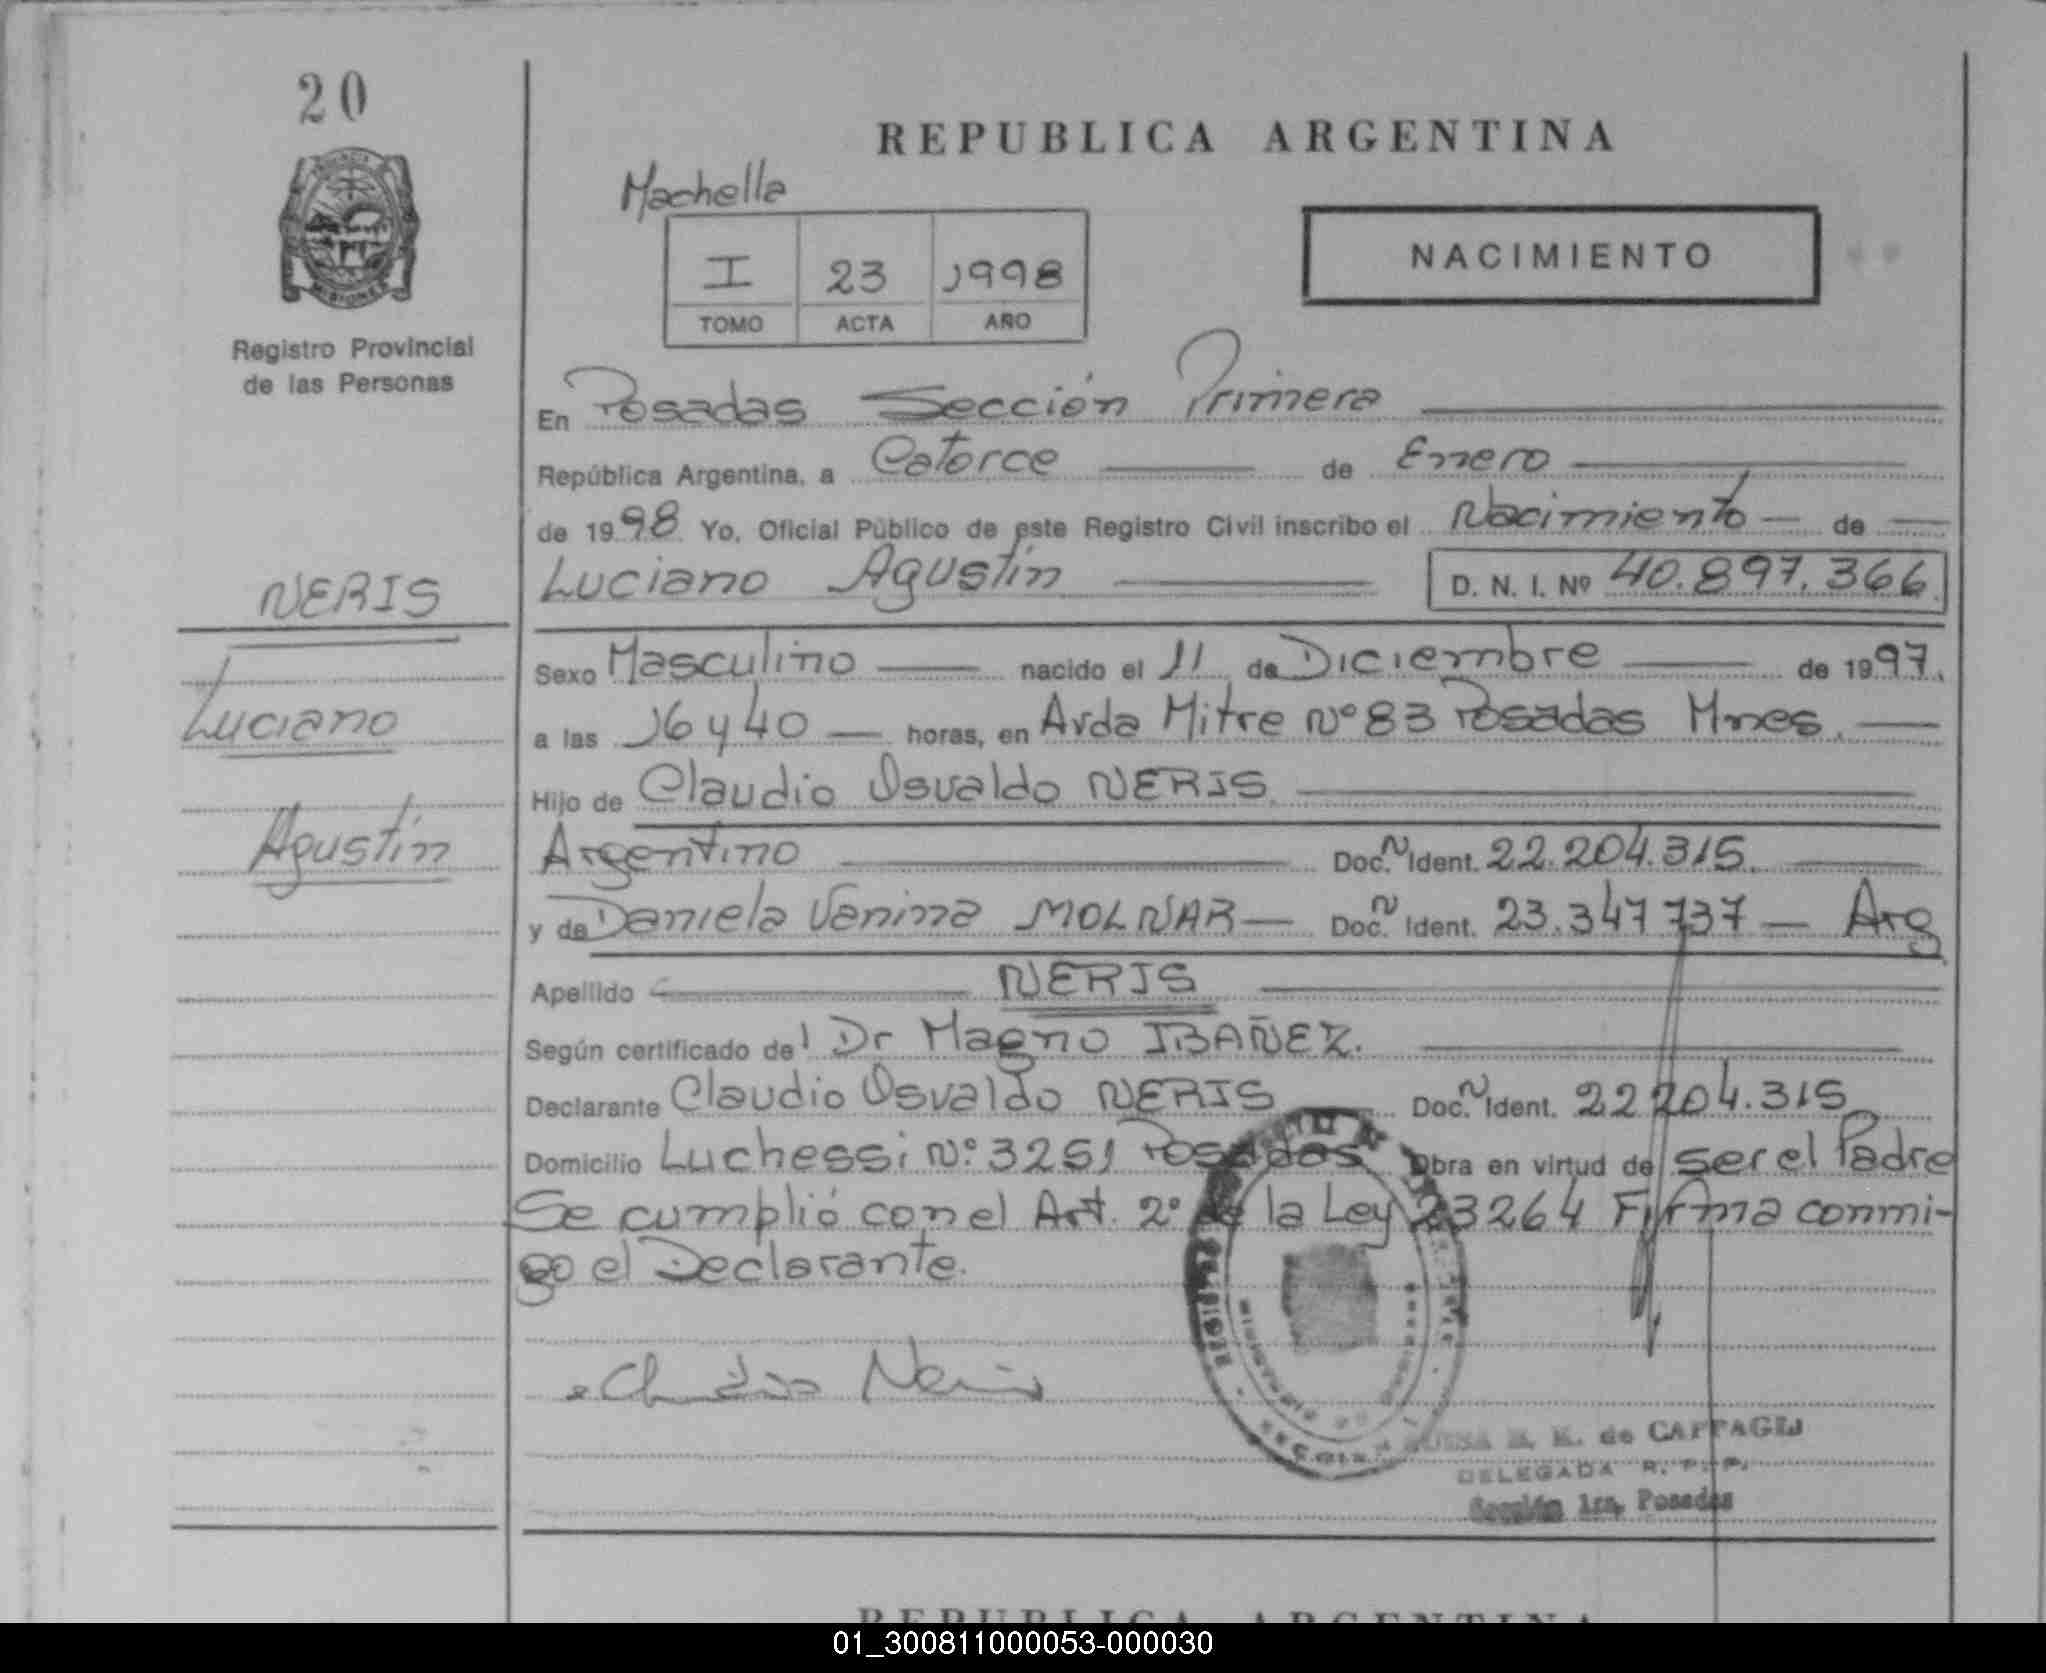 20
REPUBLICA ARGENTINA
Machella
NACIMIENTO
I 23 1998
TOMO ACTA AÑO
MISIONES
Registro Provincial
de las Personas
En Posadas Sección Primera
República Argentina, a Catorce de Enero
de 1998 Yo, Oficial Público de este Registro Civil inscribo el Nacimiento de
NERIS
Luciano Agustín D. N. I. Nº 40.897.366
Sexo Masculino nacido el 11 de Diciembre de 1997.
Luciano
a las 16 y 40 horas, en Avda Mitre Nº 83 Posadas Mnes.
Hijo de Claudio Osvaldo NERIS
Agustín
Argentino Doc. N Ident. 22.204.315.
y de Daniela Vanina MOLNAR Doc. N Ident. 23.347 737 Arg
Apellido NERIS
Según certificado del Dr Magno IBAÑEZ.
Declarante Claudio Osvaldo NERIS Doc. N Ident. 22 204.315
Domicilio Luchessi Nº 3251 Posadas Obra en virtud de ser el Padre
Se cumplió con el Art. 2º de la Ley 23264 Firma conmi-
go el Declarante.
Claudio Neris
de CAFFAGLI
DELEGADA R. P. P.
Sección 1ra. Posadas
REPUBLICA ARGENTINA
01_300811000053-000030